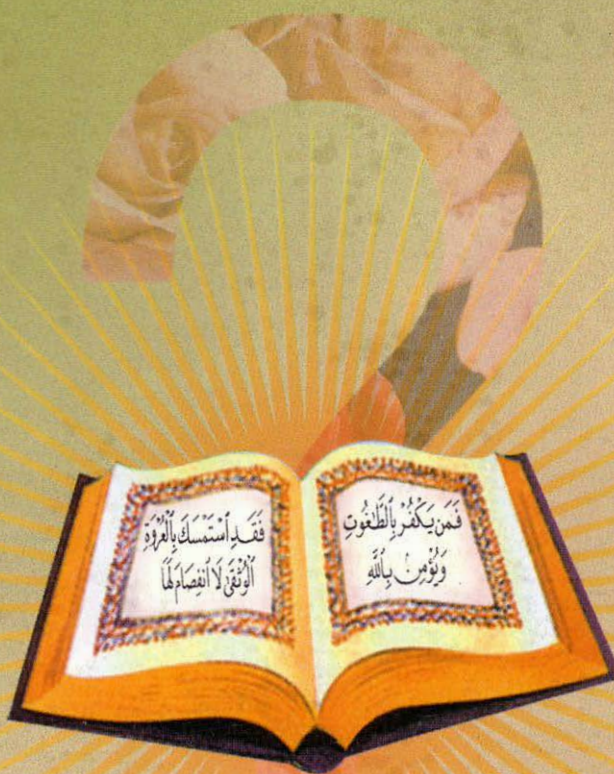 فَمَن يَكْفُرْ بِٱلطَّٰغُوتِ
وَيُؤْمِنۢ بِٱللَّهِ
فَقَدِ ٱسْتَمْسَكَ بِٱلْعُرْوَةِ
ٱلْوُثْقَىٰ لَا ٱنفِصَامَ لَهَا